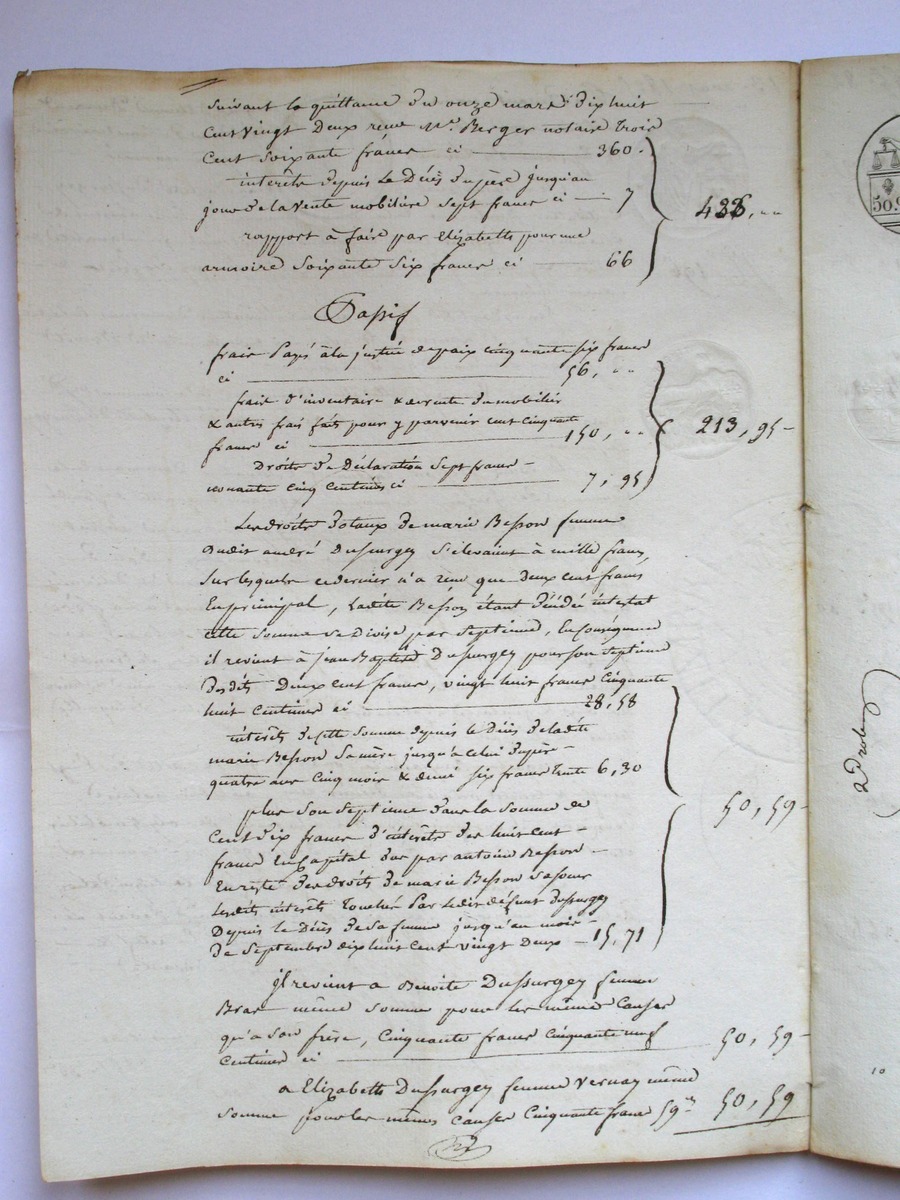 suivant la quittance du onze mars dix huit
cent vingt deux reçue Me. Berger notaire trois
cent soixante francs ci 360.
intérêts depuis le Décès du père jusqu'au
jour de la vente mobilière sept francs ci 7
438, ..
rapport à faire par Elizabeth pour une
armoire soixante six francs ci 66
Passif
frais payés à la justice de paix cinquante six francs
ci 56, ..
frais d'inventaire & de vente du mobilier
& autres frais faits pour y parvenir cent cinquante
francs ci 150, ..
213, 95
Droits de Déclaration sept francs
nonante cinq centimes ci 7, 95
Les droits dotaux de marie Besson femme
dudit andré Dussurgey s'élevaient à mille francs,
sur lesquels ce dernier n'a reçu que deux cent francs
En principal, Ladite Besson étant décédée intestat
cette somme se Divise par septième, En conséquence
il revient à jean Baptiste Dussurgey pour son septième
Desdits Deux cent francs, vingt huit francs cinquante
huit centimes ci 28, 58
intérêts de cette somme depuis le Décès de ladite
marie Besson sa mère jusqu'à celui du père
quatre ans cinq mois & demi six francs trente 6, 30
50, 59
plus son septième dans la somme de
Cent dix francs d'intérêts des huit cent
francs En Capital dus par antoine Besson
En reste des droits de marie Besson sa soeur
Lesdits intérêts touchés par ledit défunt Dussurgey
Depuis le Décès de sa femme jusqu'au mois
de septembre dix huit cent vingt deux 15, 71
il revient a Benoite Dussurgey femme
Bras même somme pour les même causes
qu'à son frère, Cinquante francs cinquante neuf
centimes ci 50, 59
a Elizabeth Dussurgey femme Vernay même
somme pour les mêmes causes Cinquante francs 59 50, 59
50.